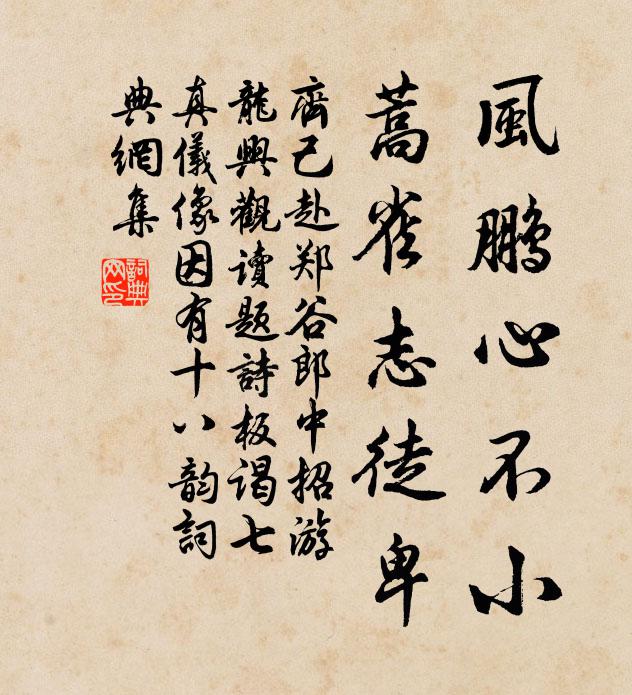 風鹏心不小
蒿雀志徒卑
齊己赴郑谷郎中招游
龍興觀讀題詩板謁七
真儀像因有十八韵詞
典網集
詞典
网印